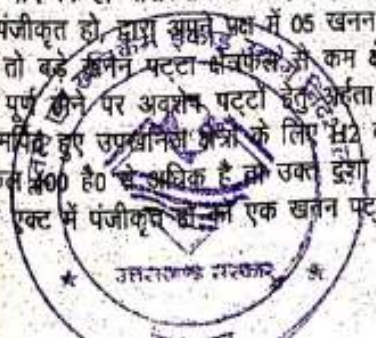 पंजीकृत हो, द्वारा अपने पक्ष में 05 खनन
तो बड़े खनन पट्टा क्षेत्रफल से कम क्षे
पूर्ण होने पर अवशेष पट्टों हेतु अर्हता
हुए उपखनिज क्षेत्रों के लिए H2
400 है0 से अधिक है तो उक्त दशा
एक्ट में पंजीकृत हो को एक खनन पट्
उत्तराखण्ड सरकार